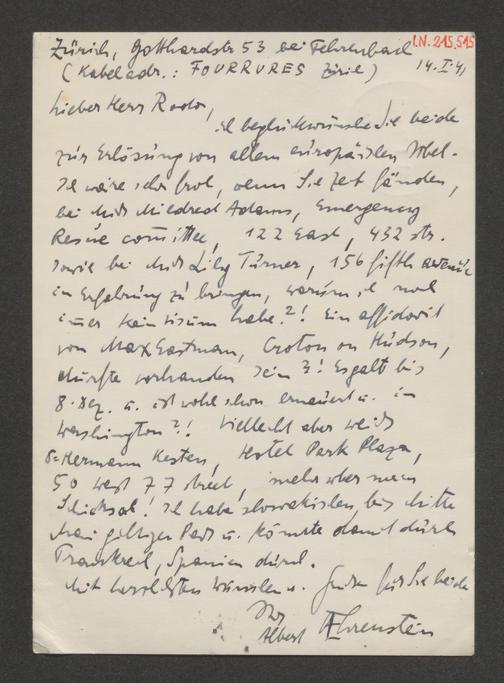 I.N. 215.515
Zürich, Gotthardstr 53 bei Fehrenbach
(Kabeladr.: FOURRURES Zürich) 14. I. 41
Lieber Herr Roda,
ich beglückwünsche Sie beide
zur Erlösung von allem europäischen Übel.
Ich wäre sehr froh, wenn Sie Zeit fänden,
bei Miss Mildred Adams, Emergency
Rescue comittee, 122 East, 432 str.
sowie bei Miss Lily Turner, 156 fifth avenue
in Erfahrung zu bringen, warum ich noch
immer kein Visum habe?! Ein affidavit
von Max Eastman, Croton on Hudson,
dürfte vorhanden sein?! Es galt bis
8. Dez. u. ist wohl schon erneuert u. in
Washington?! Vielleicht aber weiss
Hermann Kesten, Hotel Park Plaza,
50 west 77 street, mehr über mein
Schicksal! Ich habe slowakischen, bis Mitte
Mai gültigen Pass u. könnte damit durch
Frankreich, Spanien durch.
Mit herzlichsten Wünschen u. für Sie beide
Ihr
Albert Ehrenstein